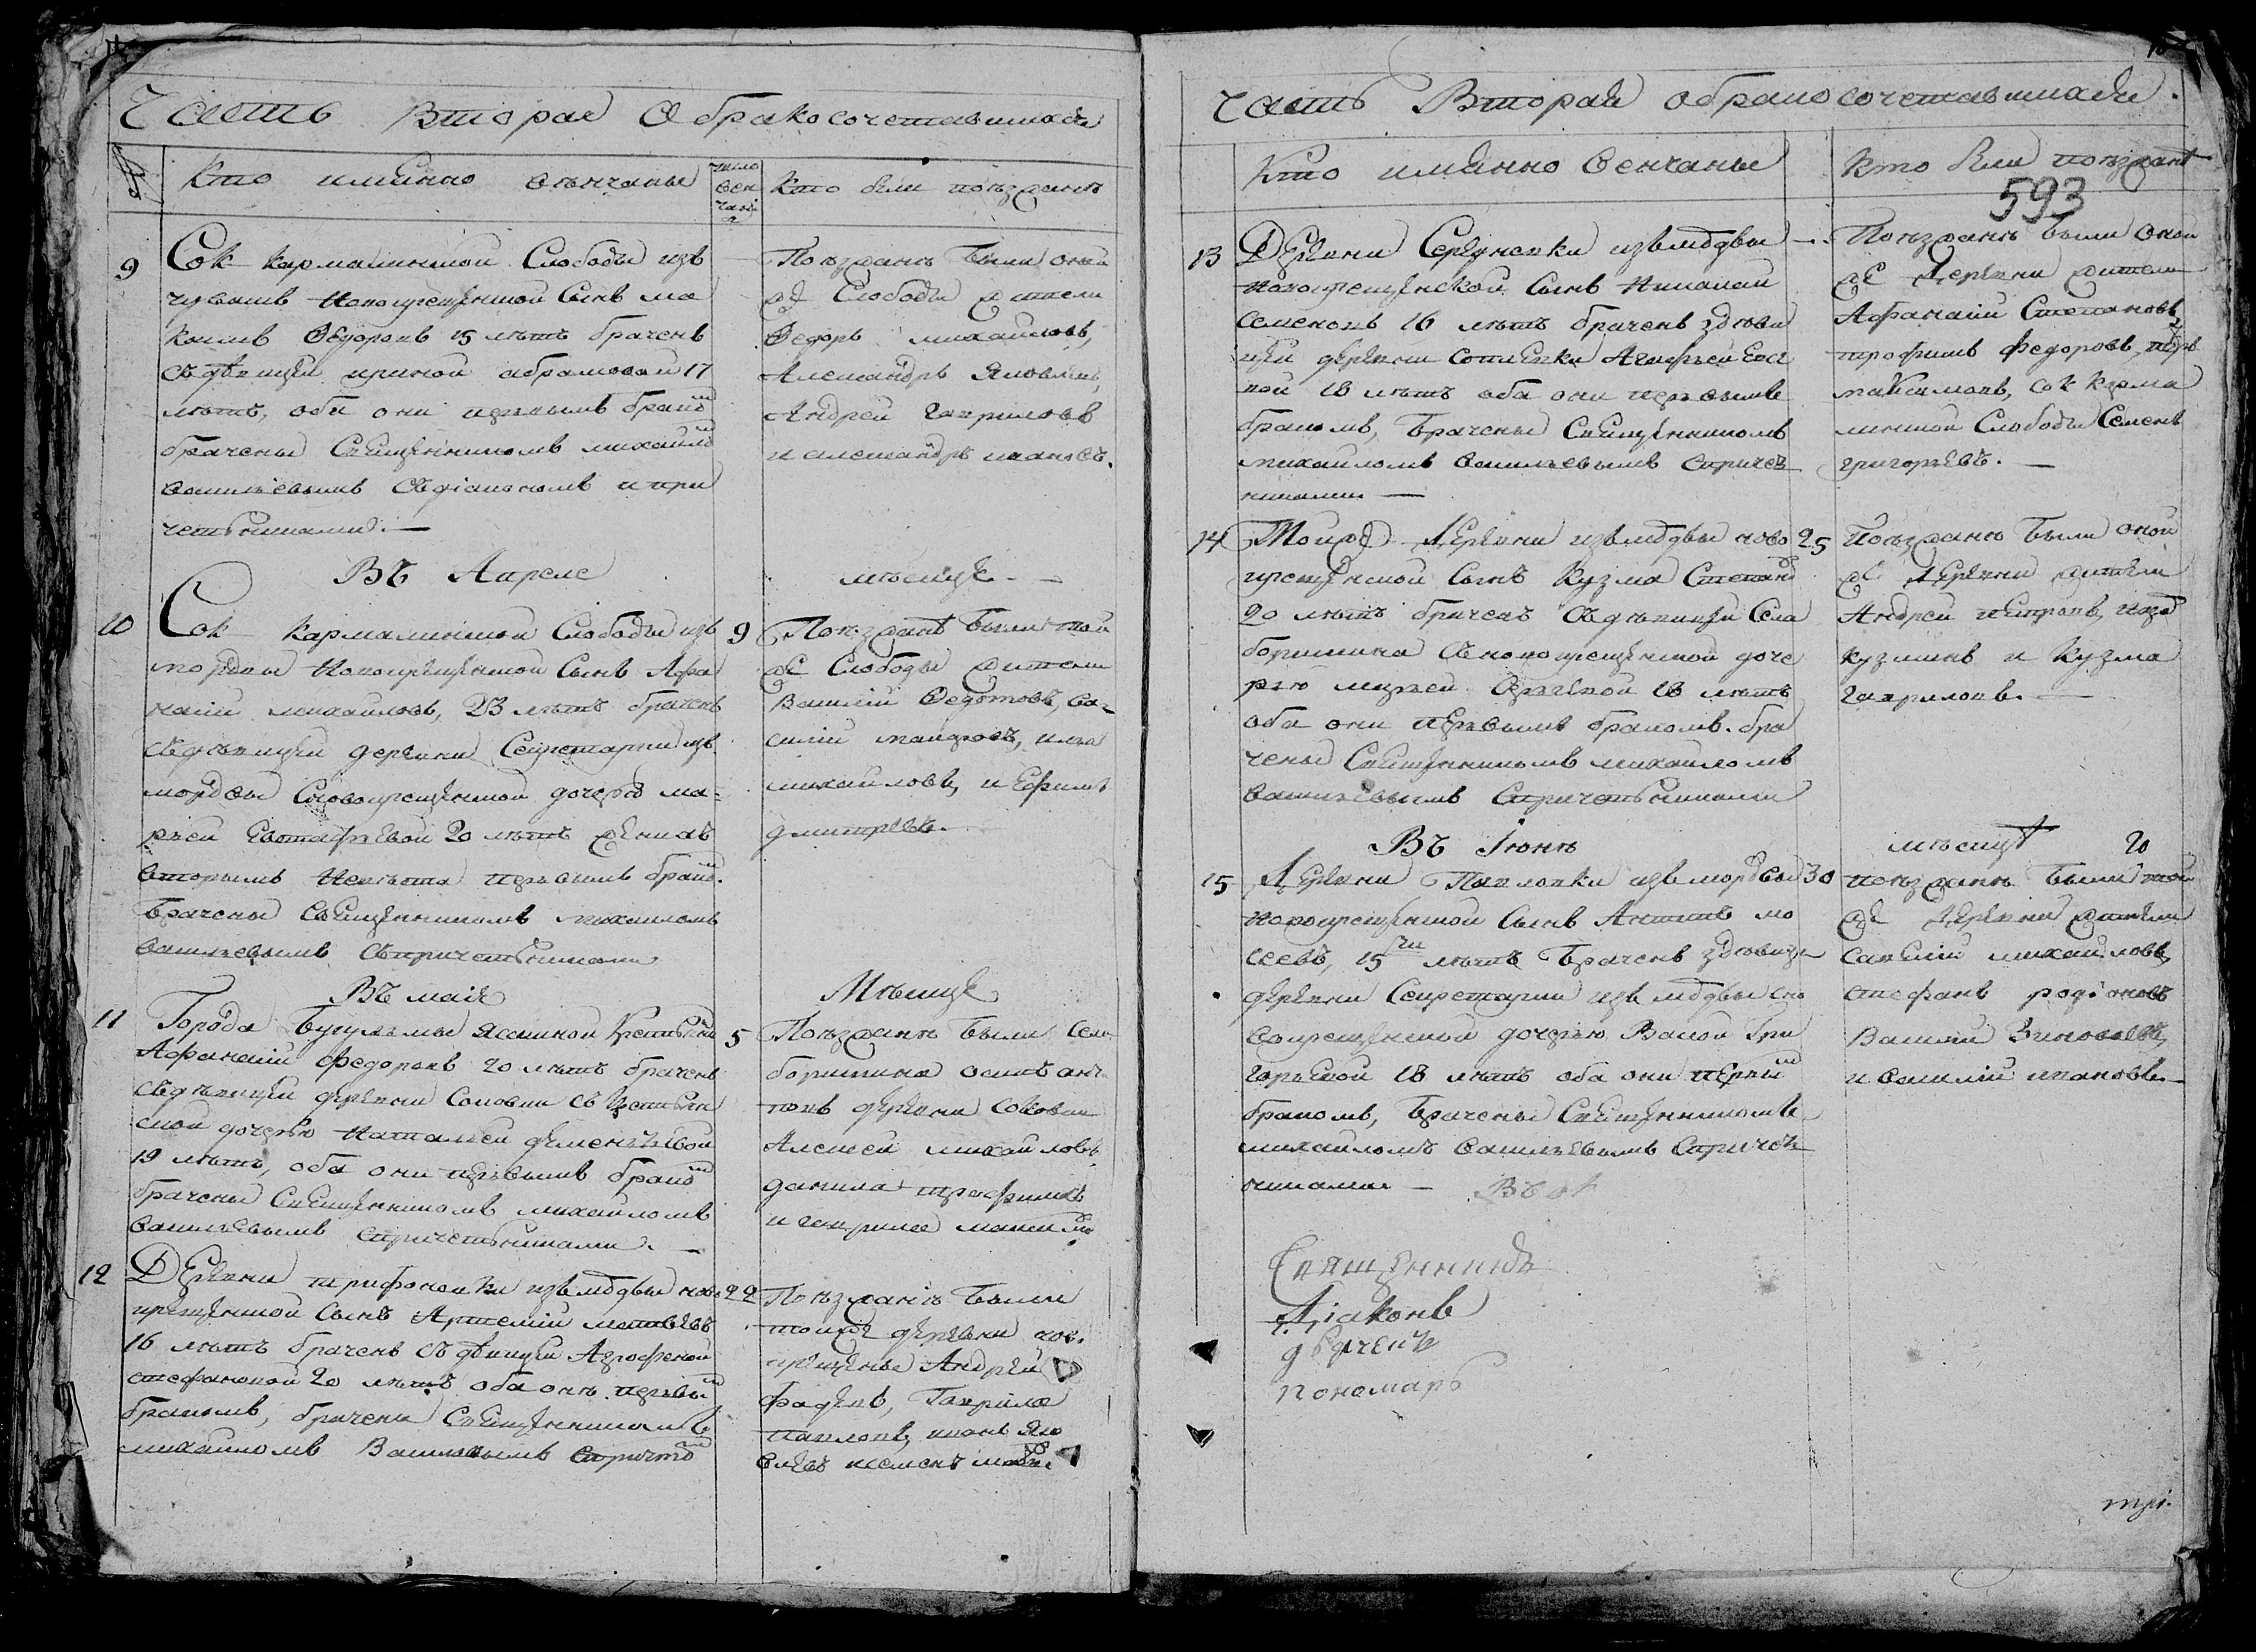 Часть Вторая О бракосочетавшихся
Кто имянно венчаны
число вен чания
Кто были поѣзжанѣ
9
Сок кармалинской Слободы изъ
чувашъ новокрещенской Сынъ ма
Ѳедоровъ 15 лѣтъ браченъ
съ дѣвицей ириной абрамовой 17
лѣтъ, оба они первымъ брако
брачены Священникомъ михаило
васильевымъ съ діакономъ и при
четниками. —
Поѣзжанѣ были оной
же Слободы жители
Ѳедоръ михайловъ,
Александръ Яковлевъ,
Андрей гавриловъ
и александръ ивановъ.
Въ Апреле
мѣсяце. —
10
Сок кармалинской Слободы изъ
мордвы новокрещенской Сынъ Афа
насий михайловъ, 23 лѣтъ браченъ
съ дѣвицей деревни Секретарки изъ
мордвы Сновокрещенской дочерью ма-
рьей Евстафьевой 20 лѣтъ женихъ
вторымъ невѣста первымъ брако.
Брачены Священникомъ михаиломъ
васильевымъ съ причетниками
9
Поѣзжанѣ были той
же Слободы жители
Василій Ѳедотовъ, ва-
силій, илья
михайловъ, и Ефимъ
дмитревъ.
Въ маие
Мѣсяце
11
Города Бугульмы ясашной Крестьянинъ
Афанасий федоровъ 20 лѣтъ браченъ
съ дѣвицей деревни Соковки съ крестьян
ской дочерью натальей дементьевой
19 лѣтъ, оба они первымъ брако
брачены Священникомъ михайломъ
васильевымъ спричетниками. —
5
Поѣзжанѣ были села
боришкина
деревни соковки
Алексей михайловъ,
данила трофимовъ
и гаврила
12
Деревни трифоновки измордвы ново
крещенской Сынъ Артемий матвеевъ
16 лѣтъ браченъ съ дѣвицей Агрофеной
стефановой 20 лѣтъ оба онѣ первы
бракомъ, брачены Священникомъ
михайломъ Васильевымъ спричто
22
Поѣзжанѣ были
тойже деревни нов.
крещены Андрей
фадеевъ, Гаврила
павловъ, иванъ Яко
влевъ исеменъ
Часть Вторая обракосочетавшихся.
Кто имянно венчаны
Кто были поѣзжанѣ
593
13
Деревни Середневки измордвы
новокрещенской Сынъ
семеновъ 16 лѣтъ браченъ здѣви
цей деревни Агафьей
18 лѣтъ оба они первымъ
бракомъ, Брачены Священникомъ
михаиломъ васильевымъ спричет
никами —
Поѣзжанѣ были оной
же Деревни жители
Афанасий Степановъ,
трофимъ федоровъ, петръ
максимовъ, сок карма
линской Слободы Семенъ
григорьевъ. —
14
Тойже Деревни измордвы ново
крещенской Сынъ Кузма Степано
20 лѣтъ браченъ Съ дѣвицей Села
боришкина Сновокрещенской доче
рью марьей 18 лѣтъ
оба они первымъ бракомъ. бра
чены Священникомъ михаиломъ
васильевымъ Спричетниками
25
Поѣзжанѣ были оной
же Деревни жители
Андрей петровъ,
кузминъ и Кузма
гавриловъ. —
Въ Іюнѣ
мѣсяцѣ
20
15
Деревни Павловки изъ мордвы
новокрещенской Сынъ Антипъ мо
сеевъ, 15 ти лѣтъ Браченъ здѣвице
деревни Секретарки измордвы сно
вокрещенской дочерью Васой Гри
горьевой 18 лѣтъ оба они первы
бракомъ, Брачены Священникомъ
михаиломъ васильевымъ Спричет
никами —
30
поѣзжанѣ были той
же Деревни жители
савелий михайловъ,
стефанъ родіоновъ
Василій Зиновьевъ,
и василій ивановъ. —
Священникъ
Діаконъ
дьячекъ
пономарь
три.